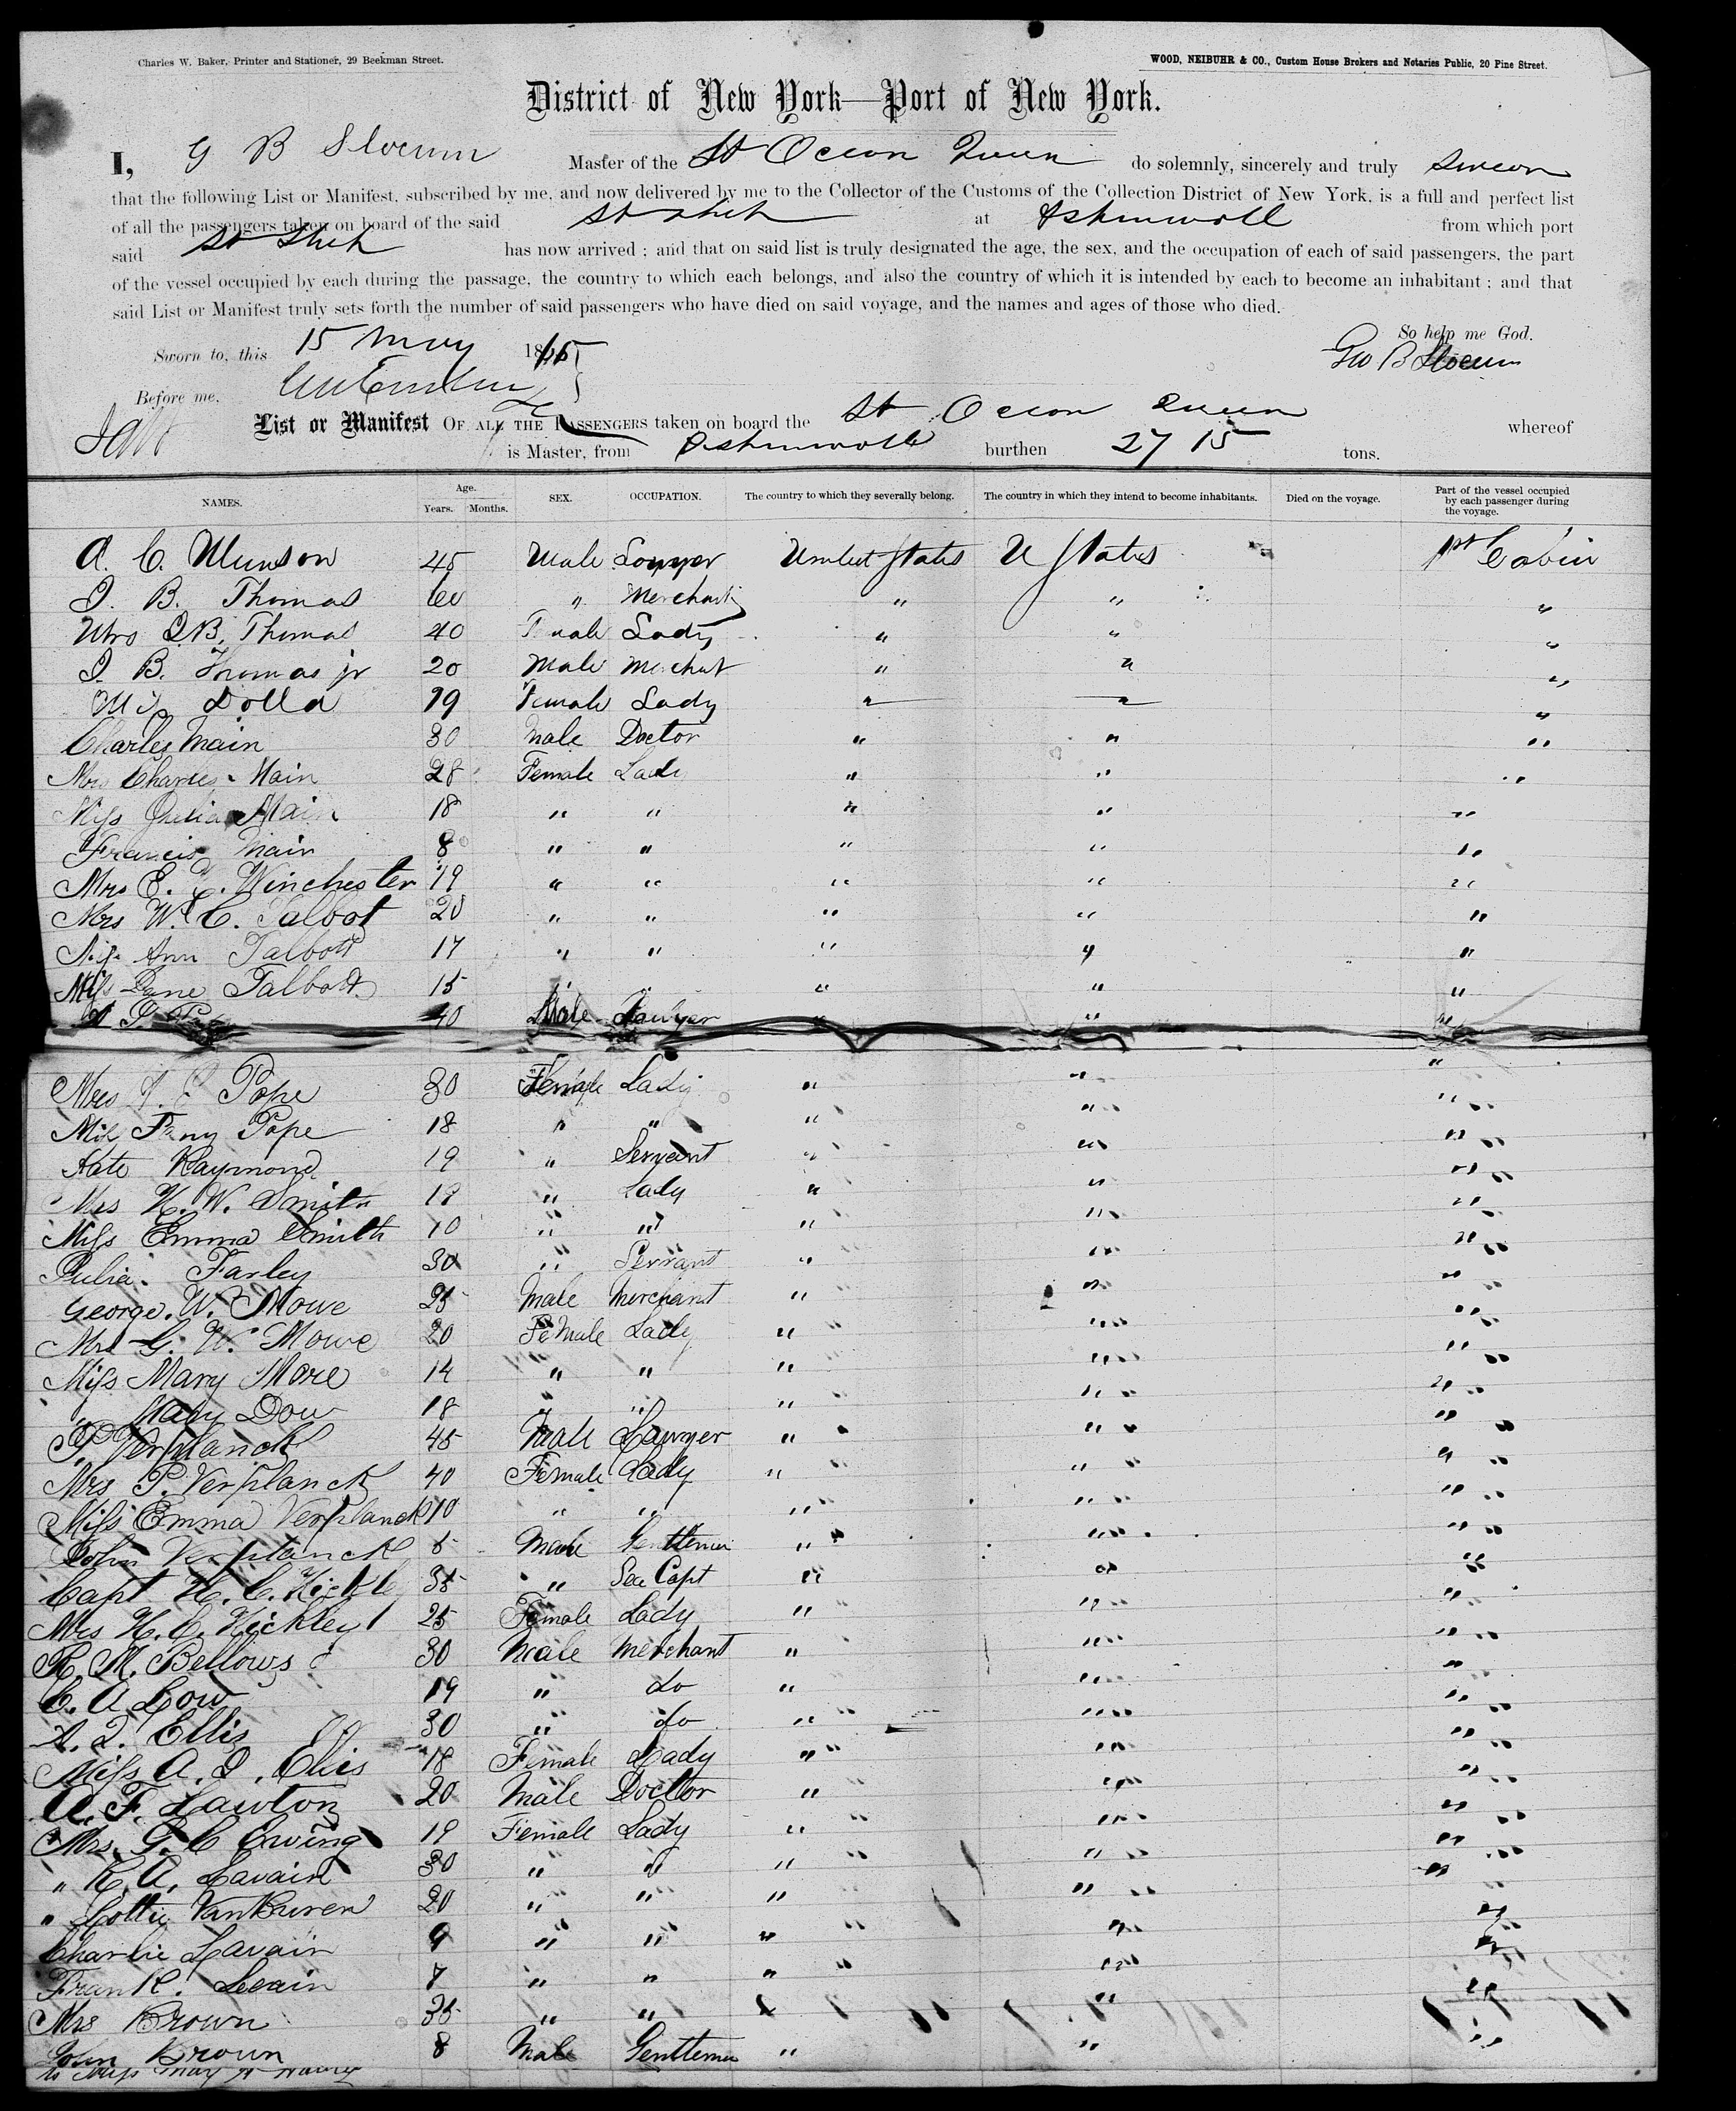 Charles W. Baker, Printer and Stationer, 29 Beekman Street.
WOOD, NEIBUHR & CO., Custom House Brokers and Notaries Public, 20 Pine Street.
District of New York—Port of New York.
I, G B Slocum Master of the St Ocean Queen do solemnly, sincerely and truly swear
that the following List or Manifest, subscribed by me, and now delivered by me to the Collector of the Customs of the Collection District of New York, is a full and perfect list
of all the passengers taken on board of the said St Ship at Ashinwall from which port
said St Ship has now arrived; and that on said list is truly designated the age, the sex, and the occupation of each of said passengers, the part
of the vessel occupied by each during the passage, the country to which each belongs, and also the country of which it is intended by each to become an inhabitant; and that
said List or Manifest truly sets forth the number of said passengers who have died on said voyage, and the names and ages of those who died.
So help me God.
Sworn to, this 15 May 1865 Geo B Slocum
Before me,
List or Manifest OF ALL THE PASSENGERS taken on board the St Ocean Queen whereof
is Master, from Ashinwall burthen 2715 tons.
NAMES. Age. Years. Months. SEX. OCCUPATION. The country to which they severally belong. The country in which they intend to become inhabitants. Died on the voyage. Part of the vessel occupied by each passenger during the voyage.
A. C. Munson 45 Male United States U States 1st Cabin
I. B. Thomas 60 " Merchant " " "
Mrs I. B. Thomas 40 Female Lady " " "
I. B. Thomas jr 20 Male Merchant " " "
Dolla 19 Female Lady " " "
Charles Main 30 Male Doctor " " "
Mrs Charles Main 28 Female Lady " " "
Miss Julia Main 18 " " " " "
Francis Main 8 " " " " "
Mrs E. Winchester 19 " " " " "
Mrs W. C. Talbot 20 " " " " "
Miss Ann Talbott 17 " " " " "
Miss Jane Talbott 15 " " " " "
40 Male Lawyer " " "
Mrs Pope 30 Female Lady " " "
Miss Fany Pope 18 " " " " "
Kate Raymond 19 " Servant " " "
Mrs H. W. Smith 19 " Lady " " "
Miss Emma Smith 10 " " " " "
Julia Farley 30 " Servant " " "
George. W. Mowe 25 Male Merchant " " "
Mrs G. W. Mowe 20 Female Lady " " "
Miss Mary More 14 " " " " "
" Mary Dow 18 " " " " "
P. Verplanck 45 Male Lawyer " " "
Mrs P. Verplanck 40 Female Lady " " "
Miss Emma Verplanck 10 " " " " "
John Verplanck 5 Male Gentleman " " "
Capt H. C. 35 " Sea Capt " " "
Mrs H. C. Hickley 25 Female Lady " " "
R. M. Bellows 30 Male Merchant " " "
C. A. Low 19 " do " " "
A. I. Ellis 30 " do " " "
Miss A. I. Ellis 18 Female Lady " " "
A. F. Lawton 20 Male Doctor " " "
Mrs. G. C Ewing 19 Female Lady " " "
" R. A. Lavain 30 " " " " "
" Lottie VanBuren 20 " " " " "
Charlie Lavain 9 " " " " "
Frank. 7 " " " " "
Mrs Brown 35 " " " " "
John Brown 8 Male Gentleman " " "